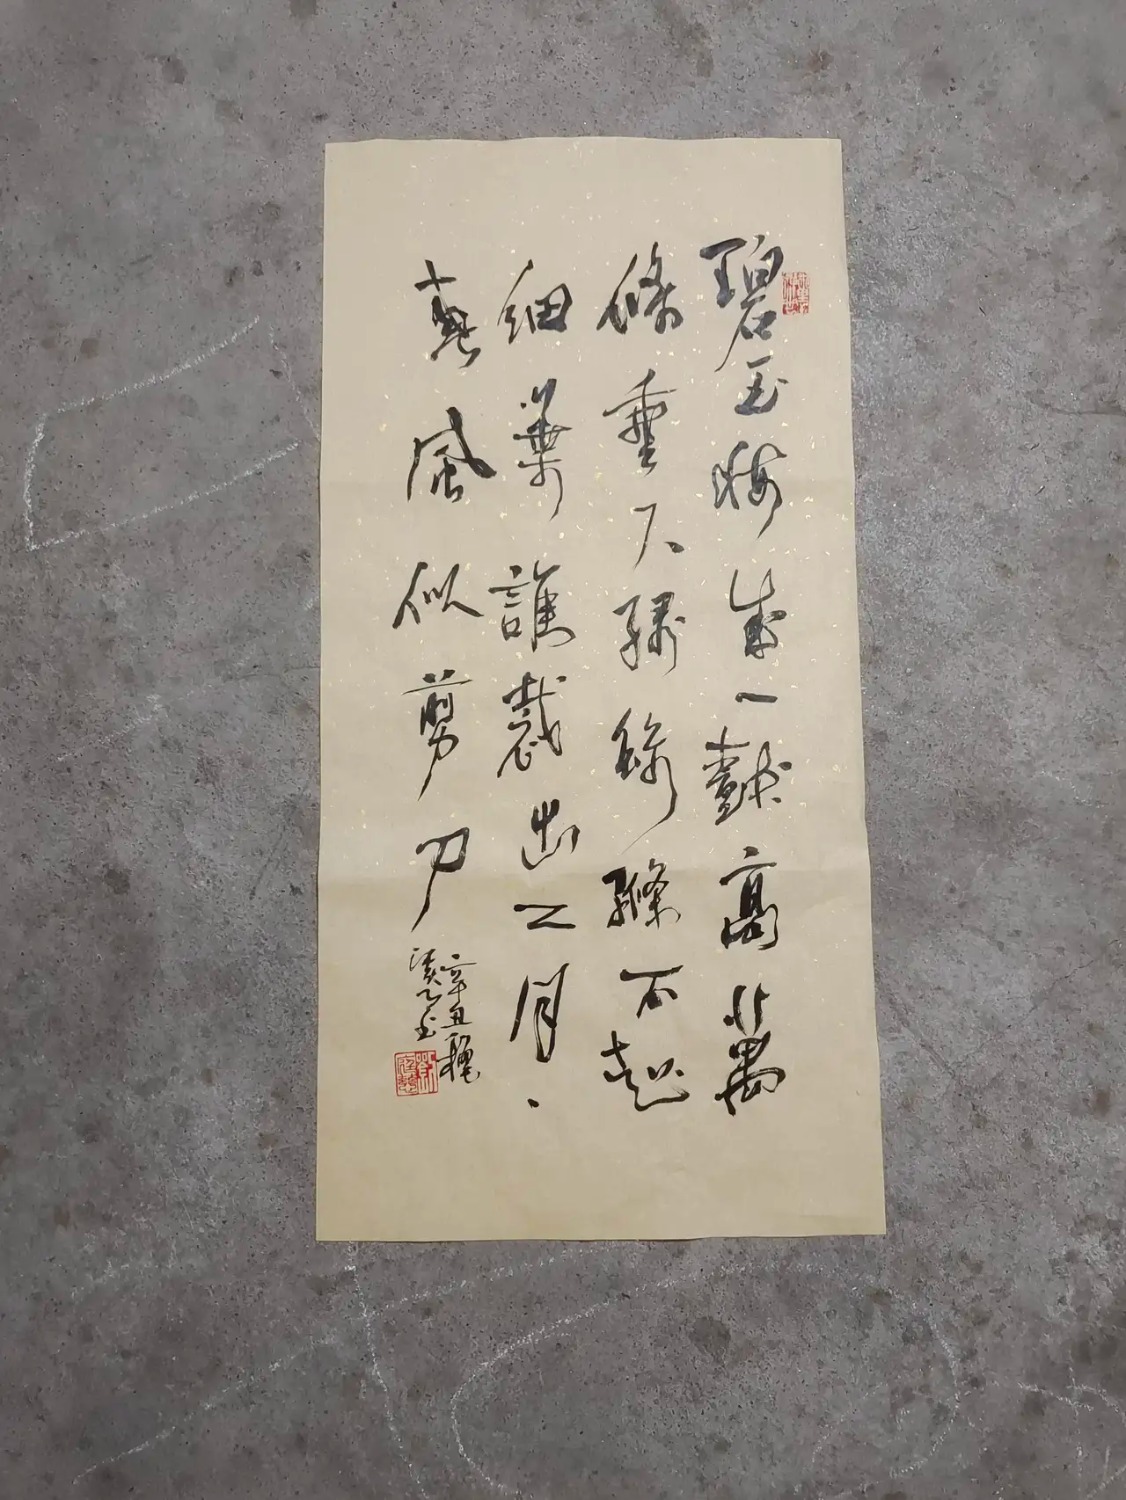 碧玉妝成一樹高萬
條垂下綠絲絛不知
細葉誰裁出二月
春風似剪刀
辛丑